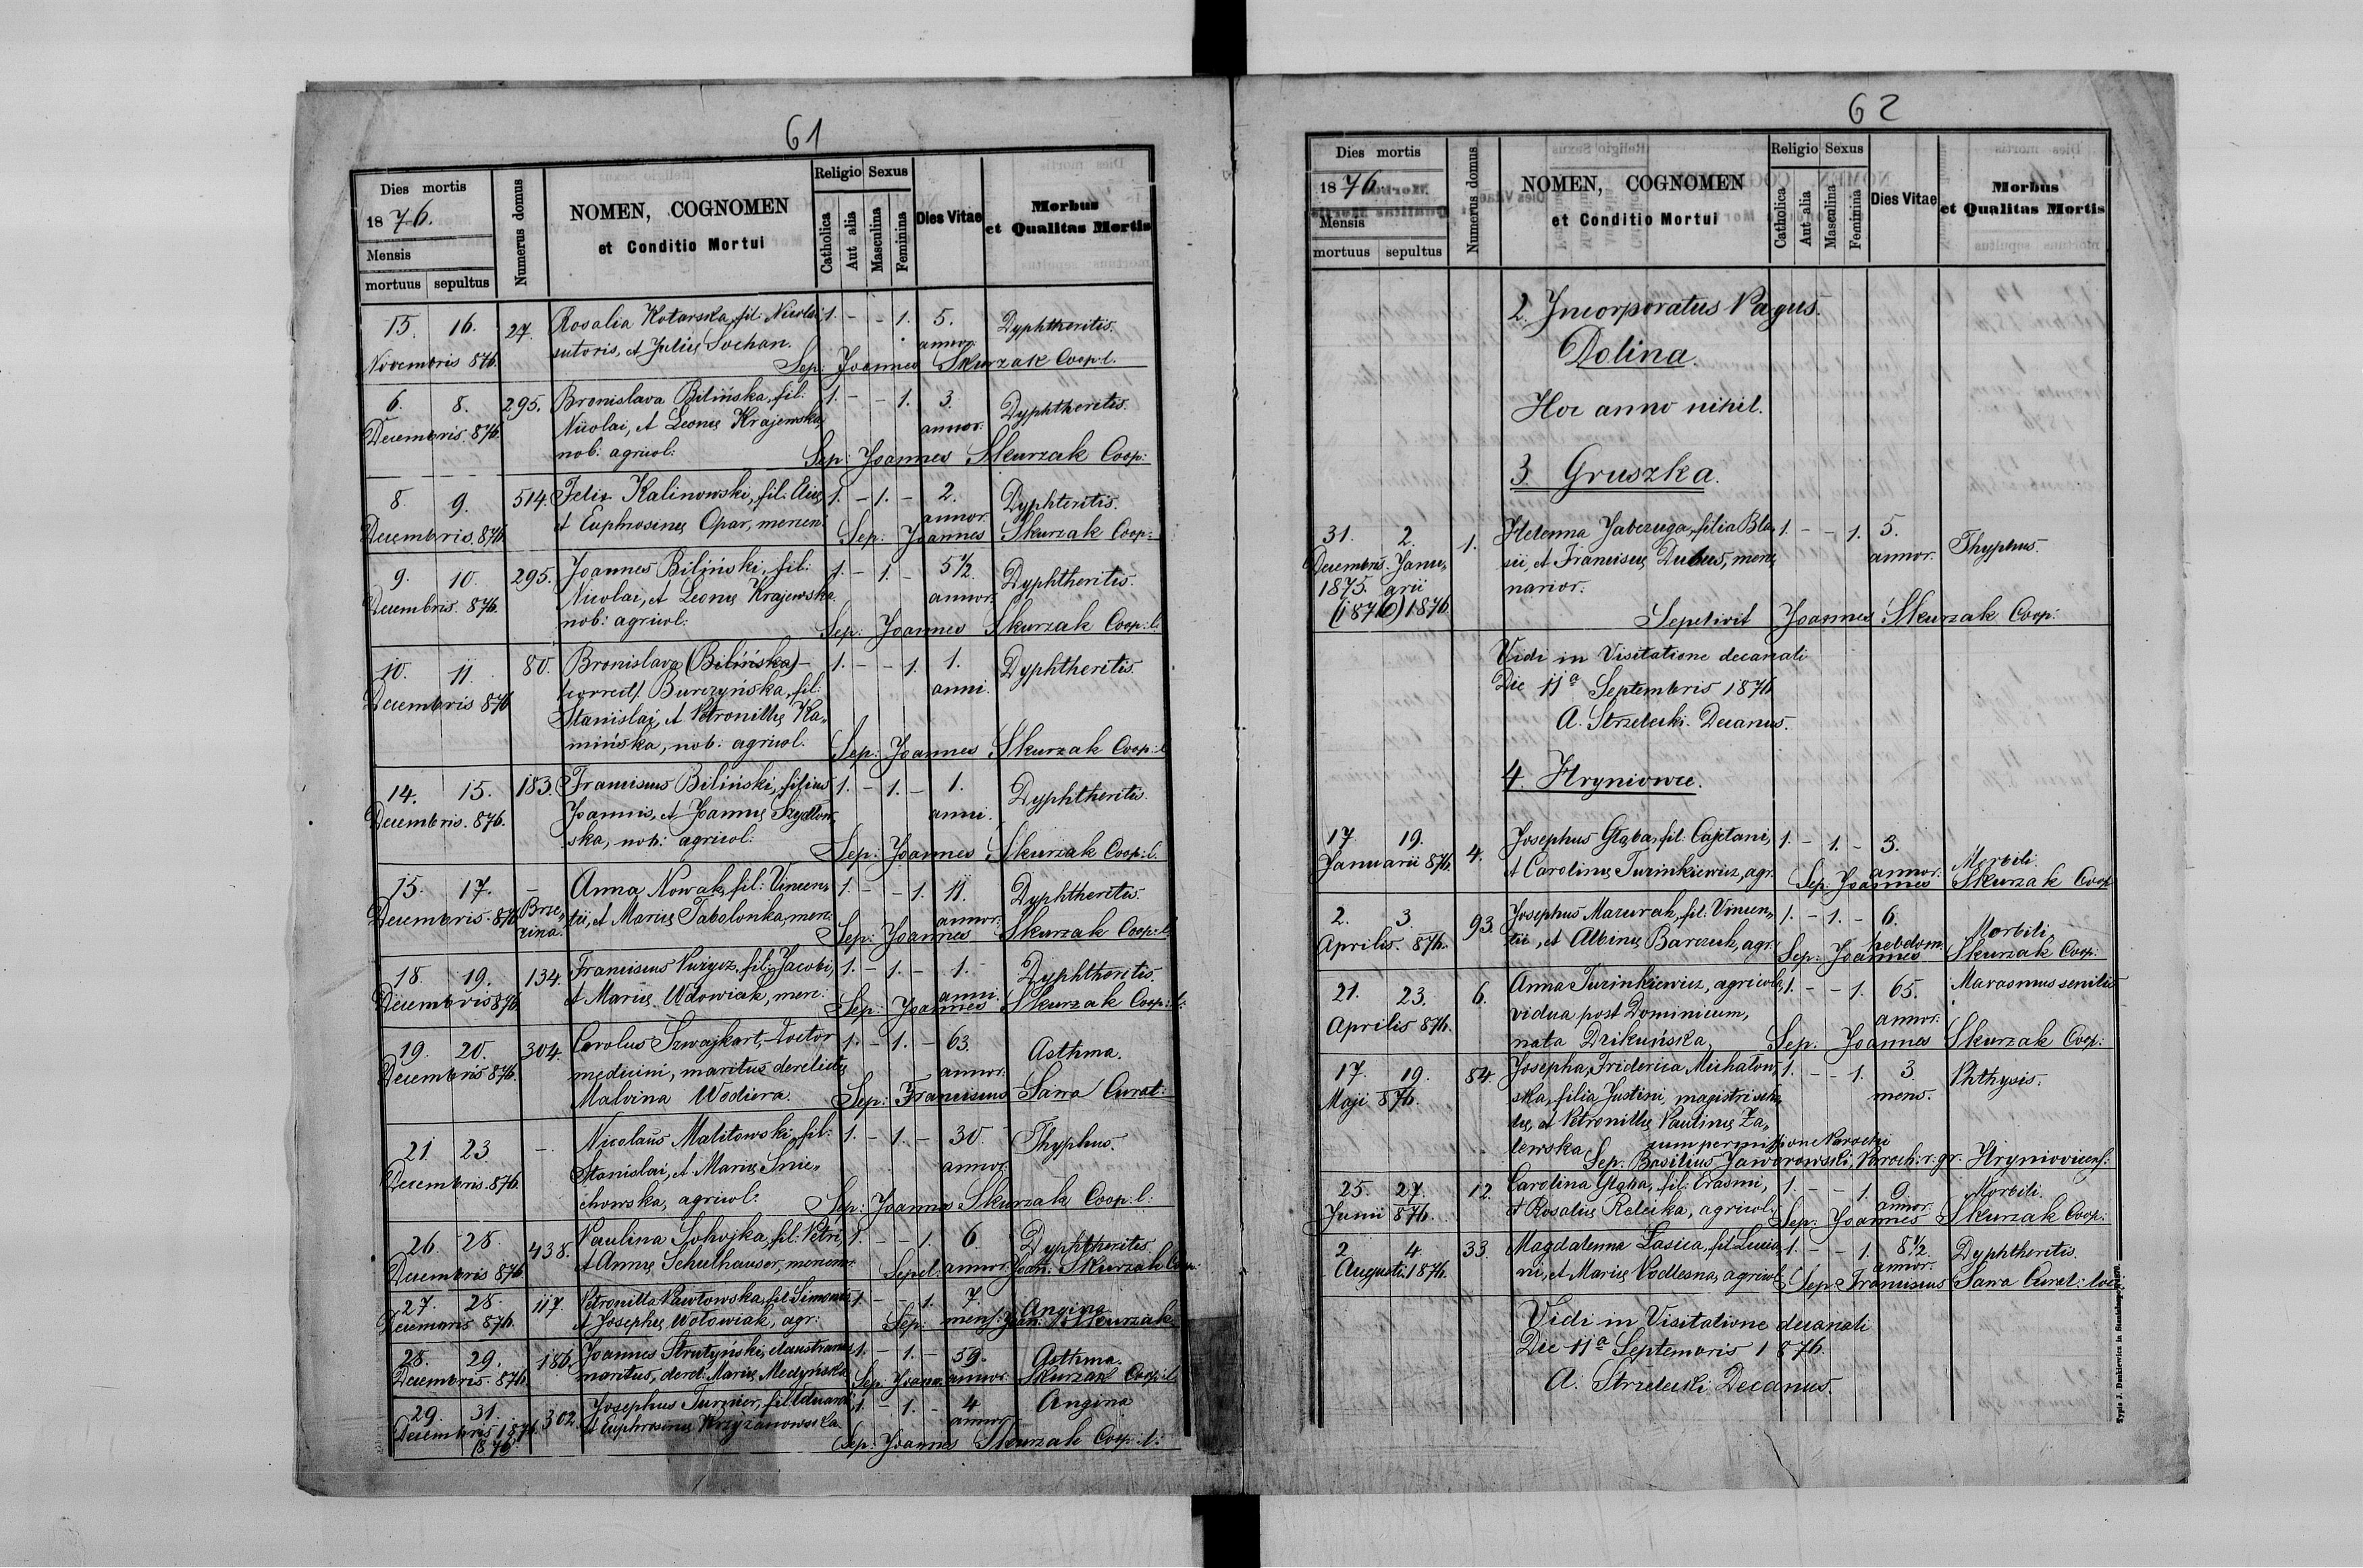 61
Dies mortis
1876.
Mensis
mortuus sepultus
Numerus domus
NOMEN, COGNOMEN
et Conditio Mortui
Religio Sexus
Catholica
Aut alia
Masculina
Feminina
Dies Vitae
Morbus
et Qualitas Mortis
15. 16. 27. Rosalia Kotarska, fil: Nicolai, 1. - - 1. 5. Dyphtheritis.
sutoris, et Juliæ Sochan. annor.
Novembris 876. Sep: Joannes Skurzak Coop: l.
6. 8. 295. Bronislava Bilińska, fil: 1. - - 1. 3. Dyphtheritis.
Decembris. 876. Nicolai, et Leonæ Krajewska, annor.
nob: agricol: Sep: Joannes Skurzak Coop:
8. 9. 514. Felix Kalinowski, fil: 1. - 1. - 2. Dyphteritis.
et Euphrosinæ Opar, mercen: annor.
Decembris. 876 Sep: Joannes Skurzak Coop:
9. 10. 295. Joannes Biliński, fil: 1. - 1. - 5 1/2. Dyphtheritis.
Decembris. 876. Nicolai, et Leonæ Krajewska. annor.
nob: agricol: Sep: Joannes Skurzak Coop: l.
10. 11. 80. Bronislava (Bilińska) - 1. - - 1. 1. Dyphtheritis.
Decembris 876 (correct). Burczyńska, fil: anni.
Stanislai, et Petronillæ Ka„
mińska, nob: agricol. Sep: Joannes Skurzak Coop: l
14. 15. 183. Franciscus Biliński, filius 1. - 1. - 1. Dyphtheritis.
Decembris. 876. Joannis, et Joannæ Szydłow„ anni.
ska, nob: agricol: Sep: Joannes Skurzak Coop: l.
15. 17. - Anna Nowak, fil: Vincen„ 1. - - 1. 11. Dyphtheritis.
Decembris. 876 Brze„ tii, et Mariæ Tabalonka, mer: annor.
zina. Sep: Joannes Skurzak Coop: l.
18. 19. 134. Franciscus Purycz, fil: Jacobi, 1. - 1. - 1. Dyphtheritis.
Decembris 876. et Mariæ Wdowiak, mer: anni.
Sep: Joannes Skurzak Coop: l:
19. 20. 304. Carolus Szwajkart, doctor 1. - 1. - 63. Asthma.
Decembris 876. medicini, maritus derelictæ annor.
Malvina Wodiera. Sep: Franciscus Sawa Curat:
21. 23. - Nicolaus Malitowski, fil: 1. - 1. - 30. Thyphus.
Decembris. 876. Stanislai, et Mariæ Śnie„ annor.
chowska, agricol: Sep: Joannes Skurzak Coop: l:
26. 28. 438. Paulina Sohojka, fil: Petri, 1. - - 1. 6. Dyphtheritis
Decembris 876. et Annæ Schulhauser, mercenar. annor.
Sepel: Joan: Skurzak Coop:
27. 28. 117. Petronilla Pawłowska, fil: Simonis 1. - - 1. 7. Angina
Decembris 876. et Josephæ Wołowiak, agr: mens:
Sep: Joan: Skurzak
28. 29. 186. Joannes Strutyński, claustrarius 1. - 1. - 59. Asthma.
Decembris. 876. maritus, derel: Mariæ Medyńska annor.
Sep. Joann: Skurzak Coop: l
29. 31. 302. Josephus Turnier, fil: Eduardi, 1. - 1. - 4 Angina
Decembris 1876. et Euphrosinæ Krzyżanowska. annor.
1876 Sep: Joannes Skurzak Coop: l:
62
Dies mortis
1876.
Mensis
mortuus sepultus
Numerus domus
NOMEN, COGNOMEN
et Conditio Mortui
Religio Sexus
Catholica
Aut alia
Masculina
Feminina
Dies Vitae
Morbus
et Qualitas Mortis
2. Incorporatus Pagus.
Dolina.
Hoc anno nihil.
3. Gruszka.
31. 2. 1. Helenna Jabczuga, filia Bla„ 1. - - 1. 5. Thyphus.
Decembris. Janu„ sii, et Franciscæ Dubus, merce„ annor.
1875. arii narior.
(1876) 1876 Sepelivit Joannes Skurzak Coop:
Vidi in Visitatione decanali
Die 11a Septembris 1876
A. Strzelecki. Decanus.
4. Hryniowce.
17 19. 4. Josephus Głąba, fil: Cajetani, 1. - 1. - 3. Morbili.
Januarii 876. et Carolinæ Turinkiewicz, agr. annor.
Sep. Joannes Skurzak Coop
2. 3. 93. Josephus Mazurak, fil: Vincen„ 1. - 1. - 6. Morbili
Aprilis 876. tii, et Albinæ Barczuk, agr. hebdom.
Sep: Joannes Skurzak Coop:
21. 23. 6. Anna Turinkiewicz, agricola, 1. - - 1. 65. Marasmus senilis
Aprilis 876. vidua post Dominicum, annor.
nata Drikuńska, Sep: Joannes Skurzak Coop:
17. 19. 84. Josepha, Friderica Michałow„ 1. - - 1. 3. Phthysis.
Maji 876. ska, filia Justini, magistri scho„ mens.
læ, et Petronillæ Paulinæ Za„
lewska cum permissione Parochi
Sep. Basilius Jaworowski, Paroch: r. gr. Hryniovicens:
25. 27. 12. Carolina Głąba, fil: Erasmi, 1. - - 1. 9. Morbili.
Junii 876. et Rosaliæ Releika, agricol: annor.
Sep: Joannes Skurzak Coop:
2 4. 33. Magdalenna Łasica, fil: Lucia„ 1. - - 1. 8 1/2. Dyphtheritis.
Augusti. 1876. ni, et Mariæ Podlesna, agricol: annor.
Sep: Franciscus Sawa Curat: loci
Vidi in Visitatione decanali
Die 11a Septembris 1876.
A. Strzelecki Decanus.
Typis J. Dankiewicz in Stanislaopoli